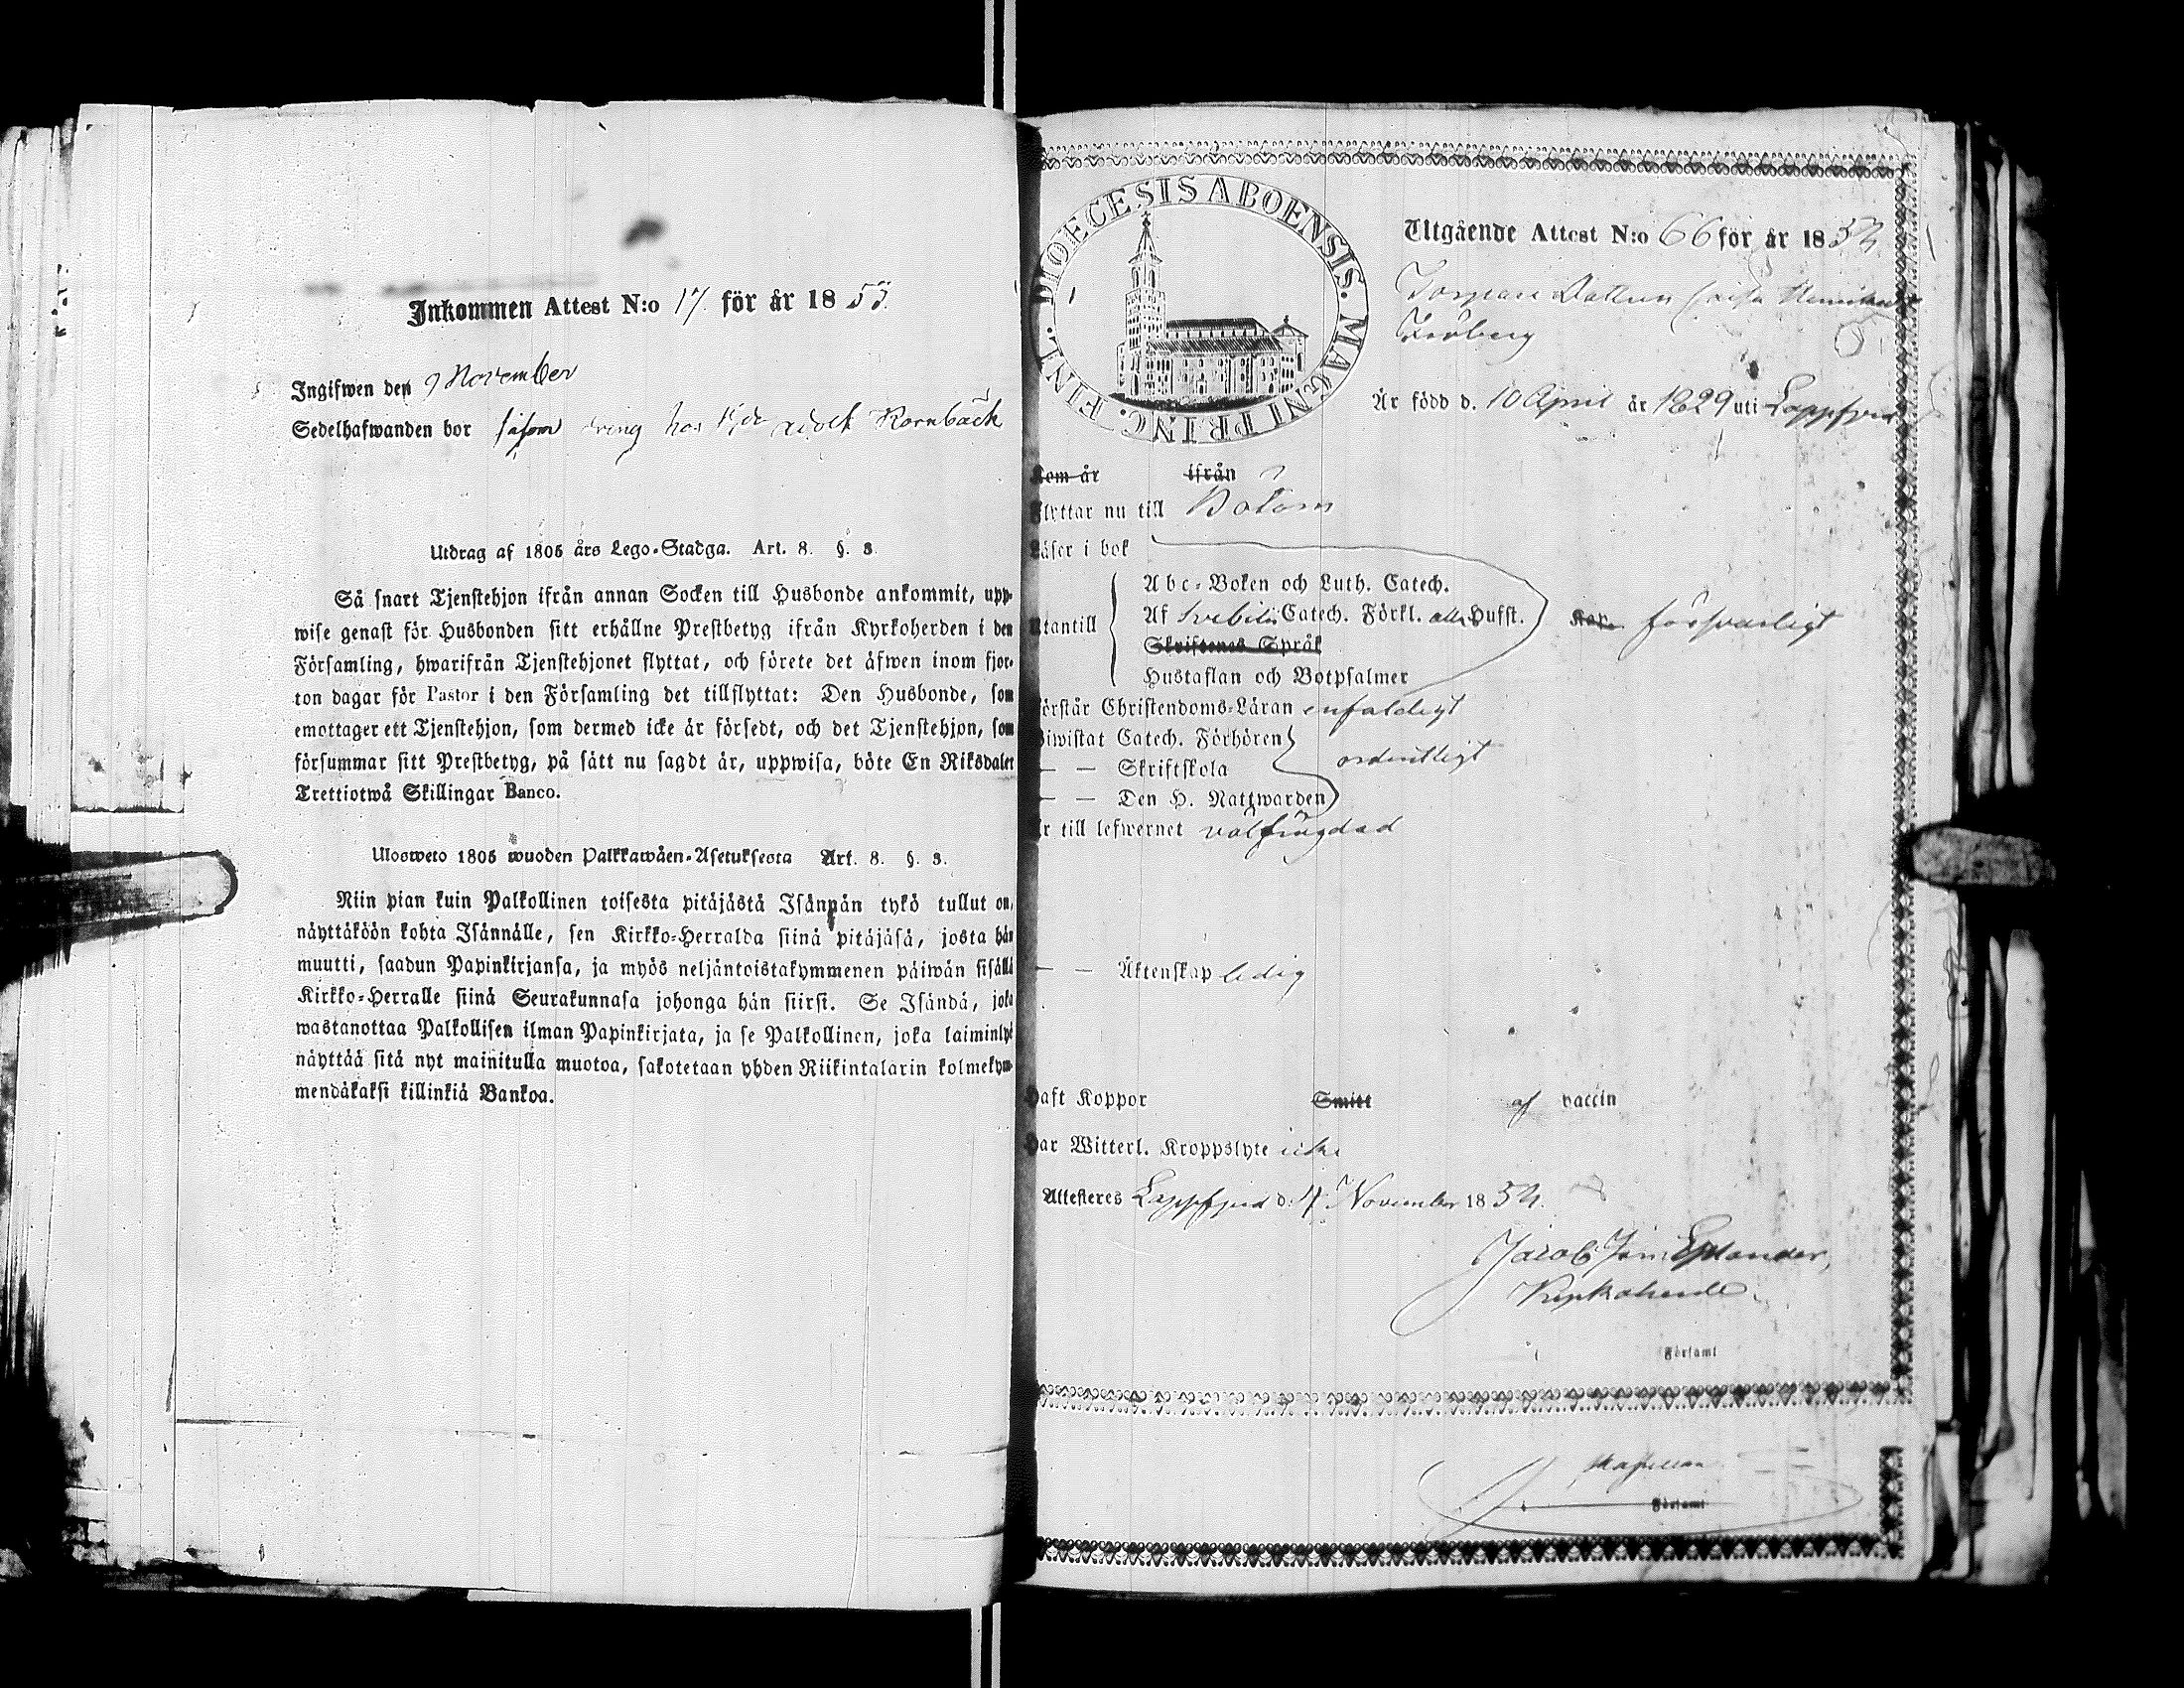 Inkommen Attest N:o 17. för år 1853.
Ingifwen den 9 November
Sedelhafwanden bor såsom dreng hos Adolf Kornbäck
Utdrag af 1805 års Lego-Stadga. Art. 8. §. 3.
Så snart Tjenstehjon ifrån annan Socken till Husbonde ankommit, upp-
wise genast för Husbonden sitt erhållne Prestbetyg ifrån Kyrkoherden i den
Församling, hwarifrån Tjenstehjonet flyttat, och förete det äfwen inom fjor-
ton dagar för Pastor i den Församling det tillflyttat: Den Husbonde, som
emottager ett Tjenstehjon, som dermed icke är försedt, och det Tjenstehjon, som
försummar sitt Prestbetyg, på sätt nu sagdt är, uppwisa, böte En Riksdaler
Trettiotwå Skillingar Banco.
Ulosweto 1805 wuoden Palkkawäen-Asetuksesta Art. 8. §. 3.
Niin pian kuin Palkollinen toisesta pitäjästä Isännän tykö tullut on,
näyttäköön kohta Isännälle, sen Kirkko-Herralda siinä pitäjäsä, josta hän
muutti, saadun Papinkirjansa, ja myös neljäntoistakymmenen päiwän sisällä
Kirkko-Herralle siinä Seurakunnasa johonga hän siirsi. Se Isändä, joka
wastanottaa Palkollisen ilman Papinkirjata, ja se Palkollinen, joka laiminlyö
näyttää sitä nyt mainitulla muotoa, sakotetaan yhden Riikintalarin kolmekym-
mendäkaksi killinkiä Bankoa.
FINL. DIOECESIS ABOENSIS. MAGNI PRINC.
Utgående Attest N:o 66 för år 1854
Är född d. 10 April år 1829 uti Lappfjerd
Kom år ifrån
Flyttar nu till Bötom
Läser i bok
Abc-Boken och Luth. Catech.
Utantill Af Svebilii Catech. Förkl. alla Hufst. försvarligt
Skriftenes Språk
Hustaflan och Botpsalmer
Förstår Christendoms-Läran enfaldigt
Biwistat Catech. Förhören
— — Skriftskola ordentligt
— — Den H. Nattwarden
Är till lefwernet välfrägdad
— — Äktenskap ledig
Haft Koppor Smitt af vaccin
Har Witterl. Kroppslyte icke
Attesteres Lappfjerd d. 4 November 1854.
Jacob Estlander,
Kyrkoherde.
Församl
Kapellan
Församl